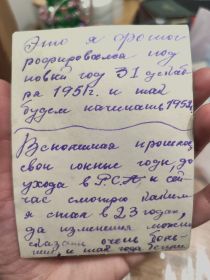 Это я фотог
рафировался под
новый год 31 декаб
ря 1951г. и так
будем начинать 1952
Вспоминая прошлое,
свои юные годы, до
ухода в Р.С.А и сей
час смотрю каким
я стал в 23 года,
да изменения можно
сказать очень боль
шие, и так года